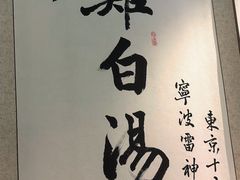 雞白湯
東京十
寧波雷神